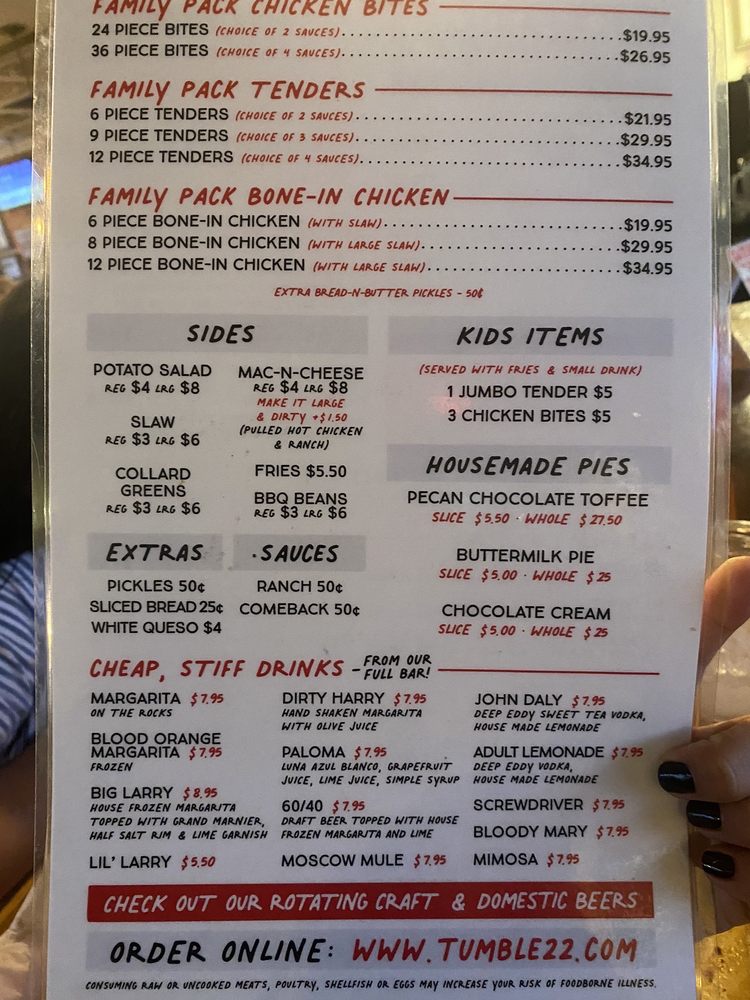 FAMILY PACK CHICKEN BITES
24 PIECE BITES (CHOICE OF 2 SAUCES)..................$19.95
36 PIECE BITES (CHOICE OF 4 SAUCES)..................$26.95
FAMILY PACK TENDERS
6 PIECE TENDERS (CHOICE OF 2 SAUCES)..................$21.95
9 PIECE TENDERS (CHOICE OF 3 SAUCES)..................$29.95
12 PIECE TENDERS (CHOICE OF 4 SAUCES)..................$34.95
FAMILY PACK BONE-IN CHICKEN
6 PIECE BONE-IN CHICKEN (WITH SLAW)..................$19.95
8 PIECE BONE-IN CHICKEN (WITH LARGE SLAW)..................$29.95
12 PIECE BONE-IN CHICKEN (WITH LARGE SLAW)..................$34.95
EXTRA BREAD-N-BUTTER PICKLES - 50¢
SIDES
POTATO SALAD
REG $4 LRG $8
SLAW
REG $3 LRG $6
COLLARD
GREENS
REG $3 LRG $6
MAC-N-CHEESE
REG $4 LRG $8
MAKE IT LARGE
& DIRTY +$1.50
(PULLED HOT CHICKEN
& RANCH)
FRIES $5.50
BBQ BEANS
REG $3 LRG $6
KIDS ITEMS
(SERVED WITH FRIES & SMALL DRINK)
1 JUMBO TENDER $5
3 CHICKEN BITES $5
HOUSEMADE PIES
PECAN CHOCOLATE TOFFEE
SLICE $5.50 · WHOLE $27.50
BUTTERMILK PIE
SLICE $5.00 · WHOLE $25
CHOCOLATE CREAM
SLICE $5.00 · WHOLE $25
EXTRAS
PICKLES 50¢
SLICED BREAD 25¢
WHITE QUESO $4
·SAUCES
RANCH 50¢
COMEBACK 50¢
CHEAP, STIFF DRINKS - FROM OUR
FULL BAR!
MARGARITA $7.95
ON THE ROCKS
BLOOD ORANGE
MARGARITA $7.95
FROZEN
BIG LARRY $8.95
HOUSE FROZEN MARGARITA
TOPPED WITH GRAND MARNIER,
HALF SALT RIM & LIME GARNISH
LIL' LARRY $5.50
DIRTY HARRY $7.95
HAND SHAKEN MARGARITA
WITH OLIVE JUICE
PALOMA $7.95
LUNA AZUL BLANCO, GRAPEFRUIT
JUICE, LIME JUICE, SIMPLE SYRUP
60/40 $7.95
DRAFT BEER TOPPED WITH HOUSE
FROZEN MARGARITA AND LIME
MOSCOW MULE $7.95
JOHN DALY $7.95
DEEP EDDY SWEET TEA VODKA,
HOUSE MADE LEMONADE
ADULT LEMONADE $7.95
DEEP EDDY VODKA,
HOUSE MADE LEMONADE
SCREWDRIVER $7.95
BLOODY MARY $7.95
MIMOSA $7.95
CHECK OUT OUR ROTATING CRAFT & DOMESTIC BEERS
ORDER ONLINE: WWW.TUMBLE22.COM
CONSUMING RAW OR UNCOOKED MEATS, POULTRY, SHELLFISH OR EGGS MAY INCREASE YOUR RISK OF FOODBORNE ILLNESS.